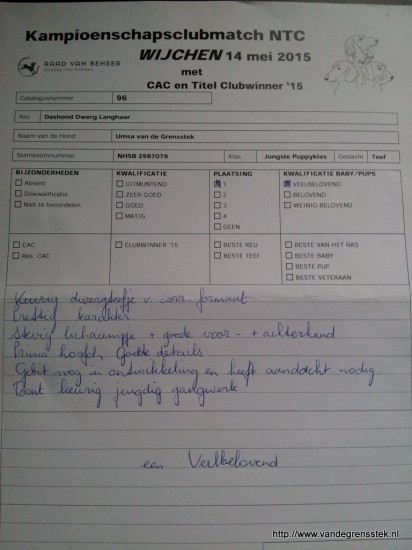 Kampioenschapsclubmatch NTC
WIJCHEN 14 mei 2015
RAAD VAN BEHEER
met
CAC en Titel Clubwinner '15
Catalogusnummer 96
Ras Dashond Dwerg Langhaar
Naam van de Hond Umsa van de Grensstek
Stamboomnummer NHSB 2987079 Klas Jongste Puppyklas Geslacht Teef
BIJZONDERHEDEN KWALIFICATIE PLAATSING KWALIFICATIE BABY/PUPS
Absent UITMUNTEND 1 VEELBELOVEND
Diskwalificatie ZEER GOED 2 BELOVEND
Niet te beoordelen GOED 3 WEINIG BELOVEND
MATIG 4
GEEN
CAC CLUBWINNER '15 BESTE REU BESTE VAN HET RAS
Res. CAC BESTE TEEF BESTE BABY
BESTE PUP
BESTE VETERAAN
Keurig dwergteefje v. corr. formaat
Prettig karakter
Stevig lichaampje + goede voor- + achterhand
Prima hoofd, Goede details
Gebit nog in ontwikkeling en heeft aandacht nodig.
Toont keurig jeugdig gangwerk
een Veelbelovend
http://www.vandegrensstek.nl